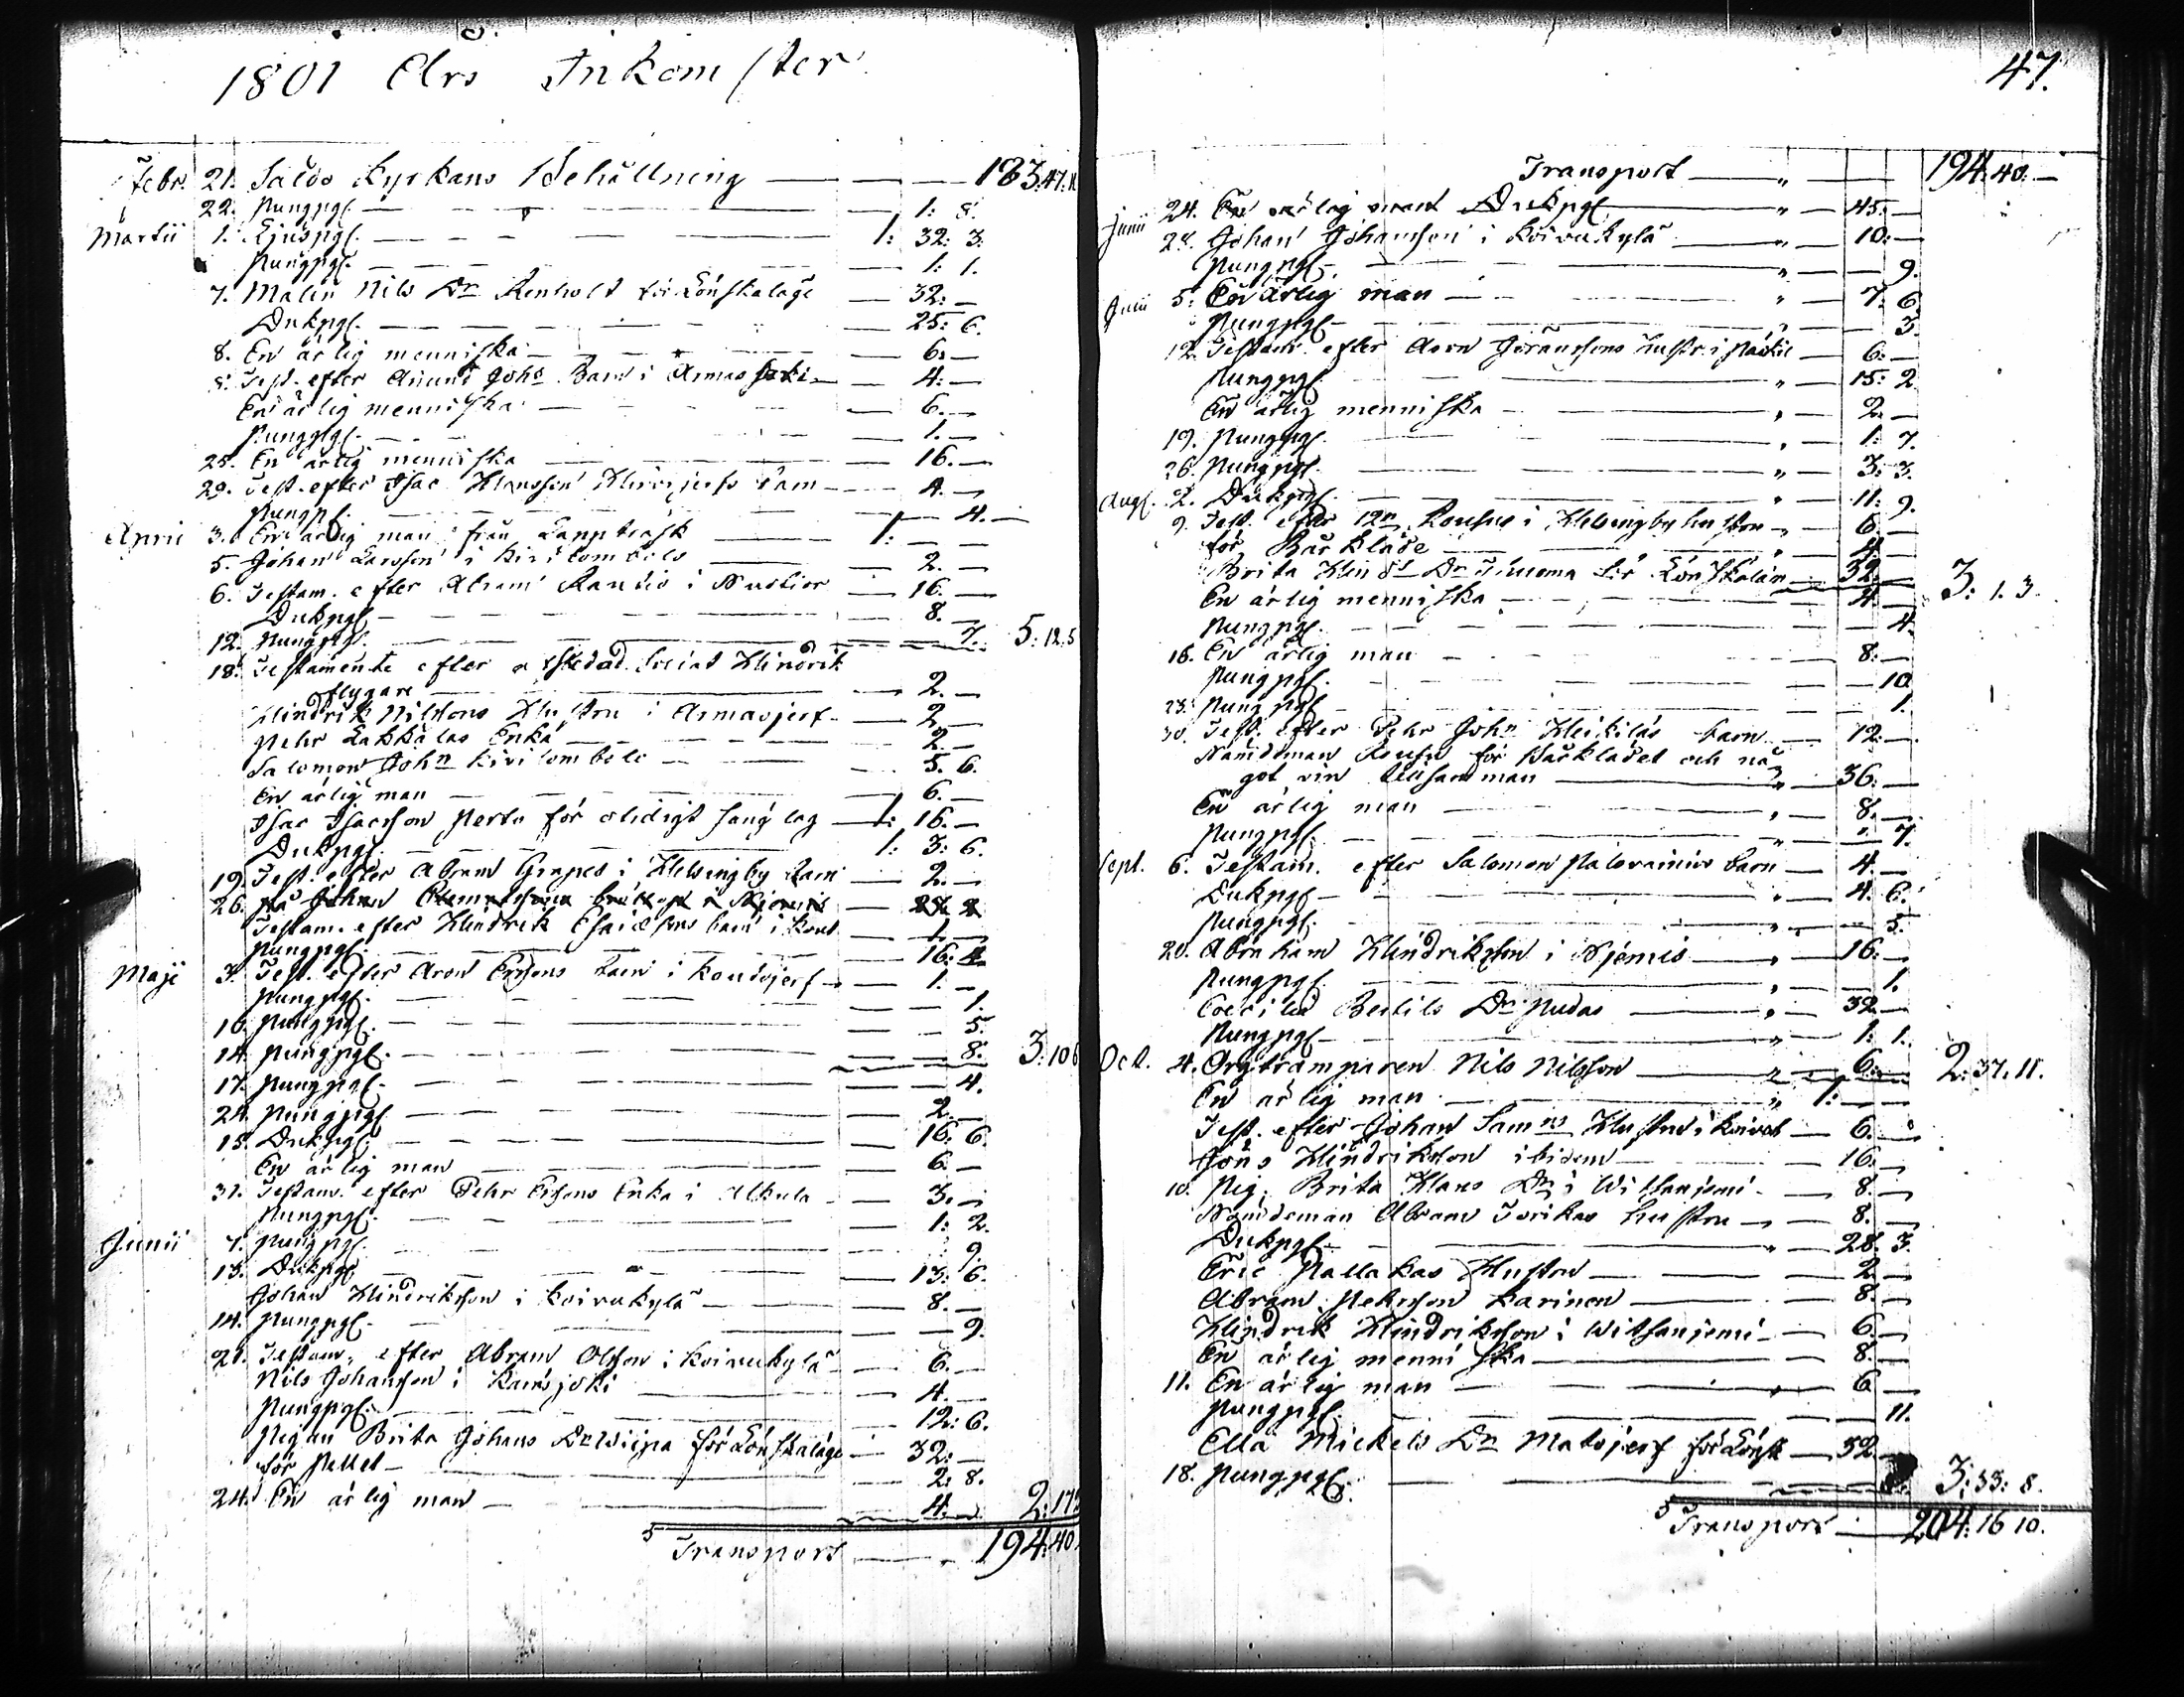 1801 Års Inkomster
Febr. 21. Saldo Kyrkans Behållning 183:47.11
22. Pungpg. 1: 8.
Martii 1. Ljuspg. 1: 32: 3.
Pungpg. 1: 1.
7. Malin Nils Dr Renholt för Lönskaläge 32:
Dukpg. 25: 6.
8. En ärlig menniska 6:
8. Test. efter Anund Johs Barn i Armassaki 4:
En ärlig menniska 6.
Pungpg. 1.
25. En ärlig menniska 16.
29. Test. efter Isac Hansson Hirvijerfs barn 4.
Pungpg. 4.
April 3. En ärlig man från Lappträsk 1:
5. Johan Larsson i Kivilombolo 2.
6. Testam. efter Abram Rautio i Nustior 16.
Dukpg. 8.
12. Pungpg. 7. 5:12.5
18. Testamente efter afskedad Soldat Hindrik
flygare 2.
Hindrik Nilssons Hustru i Armasjerf 2
Pehr Lakkalas Enka 2.
Salomon Johns Kivilombolo 5. 6.
En ärlig man 6.
Isac Isacsson Perto för olidigt sänglag 1: 16.
Dukpg. 1: 3: 6.
19. Test. efter Abram Grapes i Helsingby barn 2.
26. på Johan
Testam. efter Hindrik Esaiæsons barn i Kout 1
Pungpg. 16: 4
Maji 3. Test. efter Aron Ersons barn i Koutojerf 1.
Pungpg. 1.
10. Pungpg. 5.
14. Pungpg. 8. 3:10 6
17. Pungpg. 4.
24. Pungpg. 2.
15. Dukpg. 16: 6
En ärlig man 6.
31. Testam. efter Pehr Ersons Enka i Alkula 3.
Pungpg. 1: 2.
Junii 7. Pungpg. 9.
13. Dukpg. 13: 6.
Johan Hindriksson i Koivukylä 8.
14. Pungpg. 9.
21. Testam. efter Abram Olsson i Koivukylä 6.
Nils Johansson i Kainsjoki 4.
Pungpg. 12: 6.
Pigan Brita Johans Dr Wiipa för Lönskaläge 32:
för Pellet 2: 8.
24. En ärlig man 4. 2:17
Transport 194:40.
47.
Transport 194:40.
Junii 24. En ärlig mans Dukpg. 45:
28. Johan Johansson i Koivukylä 10:
Pungpg. 9.
Julii 5. En ärlig man 7: 6.
Pungpg. 3.
12. Testam. efter Aron Göranssons hustr. i Päckil 6.
Pungpg. 15: 2
En ärlig menniska 2.
19. Pungpg. 1: 7.
26. Pungpg. 3: 3.
Aug. 2. Dukpg. 11: 9.
9. Test. efter Rousus i Helsingby hustru 6.
för Bårkläde 4
Brita Hindr Dr för Lönskalän 32
En ärlig menniska 4. 3: 1. 3.
Pungpg. 4.
16. En ärlig man 8.
Pungpg. 10
23. Pungpg. 1.
30. Test. efter Pehr Johns Heikiläs barn 12.
Nämdeman Rousu för Bårklädet och nå=
got vin 36:
En ärlig man 8.
Pungpg. 7.
Sept. 6. Testam. efter Salomon Palovainios barn 4.
Dukpg. 4: 6.
Pungpg. 5.
20. Abraham Hindriksson i Niemis 16.
Pungpg. 1.
Coecilia Bertils Dr Pudas 32
Pungpg. 1: 1.
Oct. 4. Orgtramparen Nils Nilsson 6. 2:37.11.
En ärlig man 1:
Test. efter Johan Sam:ns Hustru i Koivuk 6.
Jöns Hindriksson ibidem 16.
10. Pig. Brita Hans Dr i Witsaniemi 8.
Nämdeman Abram Jurikas hustru 8.
Dukpg. 28: 3.
Eric Pallakas Hustru 2
Abram Pehrsson Karinen 8.
Hindrik Hindriksson i Witsaniemi 6.
En ärlig menniska 8.
11. En ärlig man 6
Pungpg. 11.
Ella Mickels Dr Matojerf för Lönsk 32
18. Pungpg. 3:33: 8.
Transport 204:16 10.